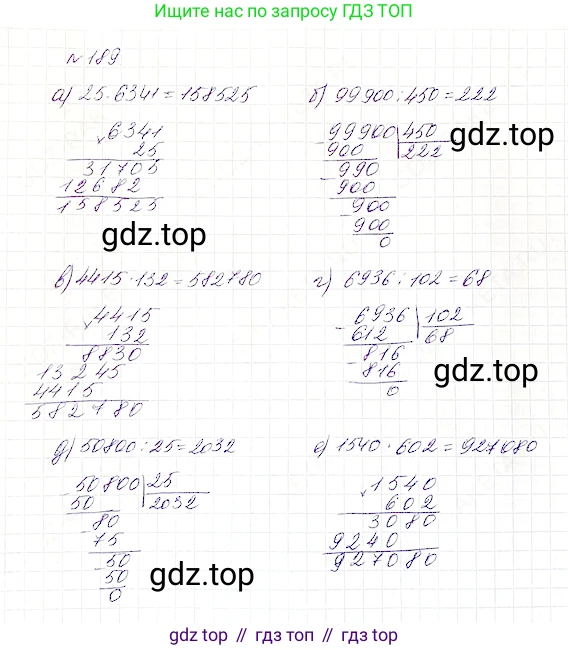 Ищите нас по запросу ГДЗ ТОП
№ 189
а) 25·6341=158525
6341
25
31705
12682
158525
gdz.top
б) 99900:450=222
99900 450
900 222
990
900
900
900
0
gdz.top
в) 4415·132=582780
4415
132
8830
13245
4415
582780
г) 6936:102=68
6936 102
612 68
816
816
0
gdz.top
д) 50800:25=2032
50800 25
50 2032
80
75
50
50
0
gdz.top
е) 1540·602=927080
1540
602
3080
9240
927080
gdz top // гдз топ // гдз.top